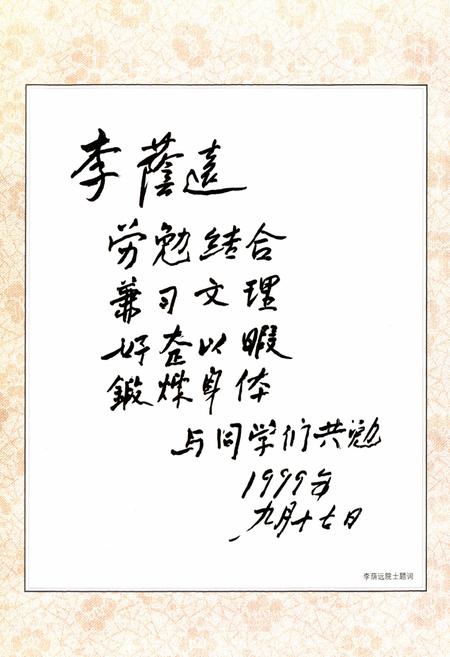 李蔭遠
劳逸结合
兼习文理
好整以暇
鍛煉身体
与同学们共勉
1999年
九月十七日
李荫远院士题词